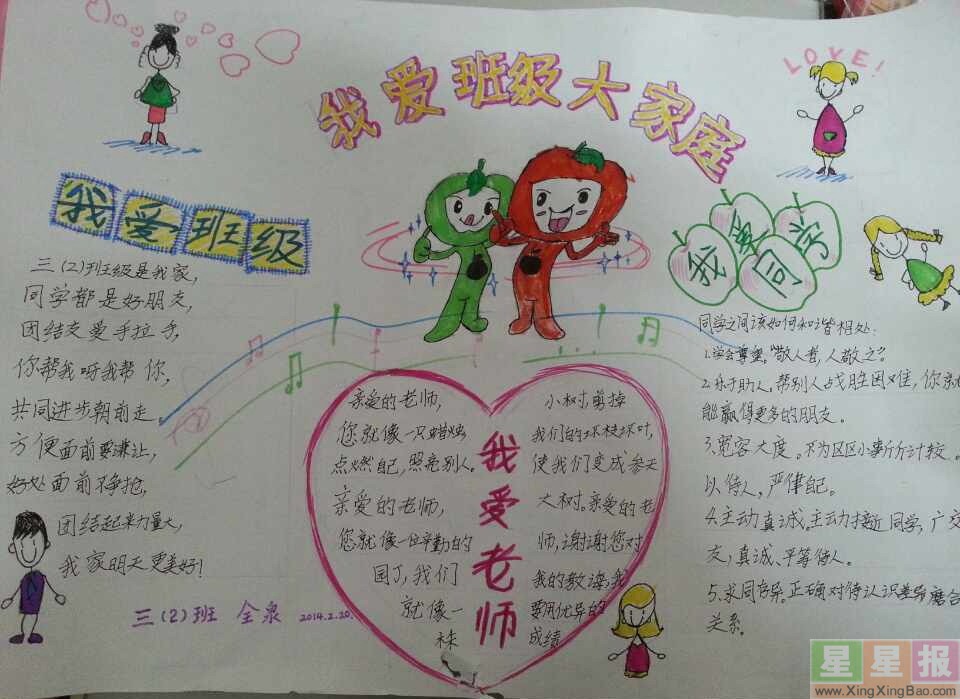 我爱班级大家庭
LOVE!
我爱班级
三(2)班级是我家,
同学都是好朋友,
团结友爱手拉手,
你帮我呀我帮你,
共同进步朝前走。
方便面前要谦让,
好处面前不争抢,
团结起来力量大,
我家明天更美好!
三(2)班 全泉 2014.2.20.
我爱老师
亲爱的老师,
您就像一只蜡烛
点燃自己,照亮别人。
亲爱的老师,
您就像一位辛勤的
园丁,我们
就像一
株
小树,剪掉
我们的坏枝坏叶,
使我们变成参天
大树。亲爱的老
师,谢谢您对
我的教诲,我
要用优异的
成绩
我爱同学
同学之间该如何和谐相处:
1.学会尊重。"敬人者,人敬之"。
2.乐于助人,帮别人战胜困难,你就
能赢得更多的朋友。
3.宽容大度。不为区区小事斤斤计较。
以待人,严律己。
4.主动真诚。主动接近同学,广交
交,真诚、平等待人。
5.求同存异。正确对待认识差异磨合
关系。
星星报
www.XingXingBao.com